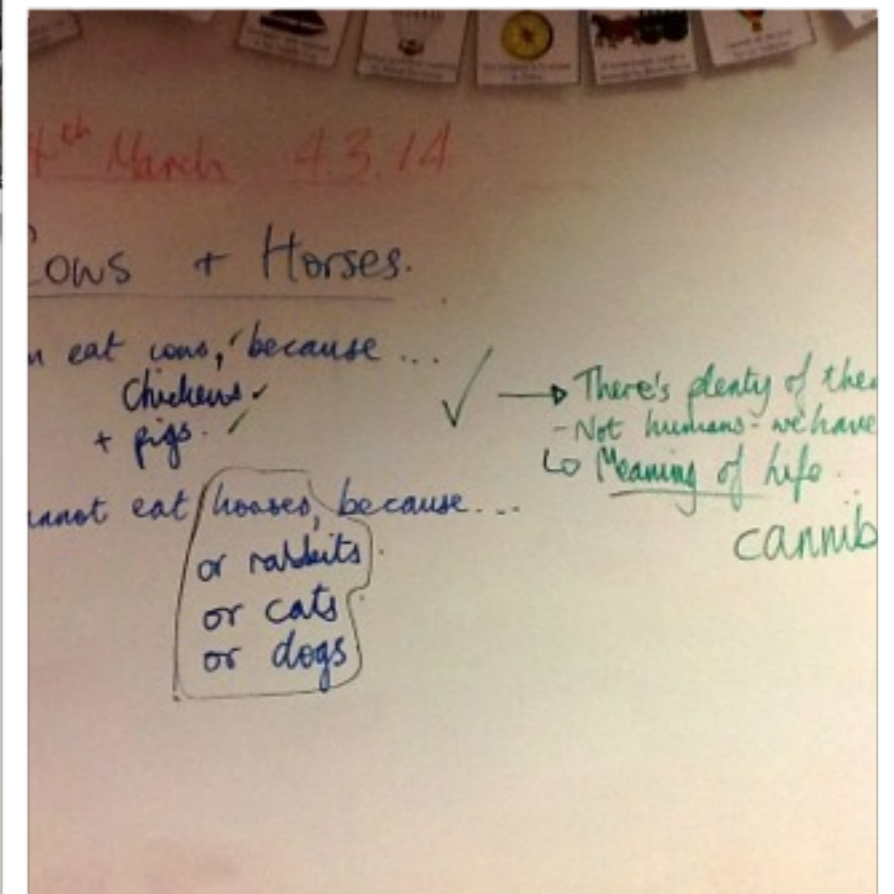 4th March 4.3.14
Cows + Horses.
n eat cows, because ...
Chickens
+ pigs.
There's plenty of the
- Not humans - we have
Meaning of Life.
cannib
nnot eat horses, because ...
or rabbits
or cats
or dogs